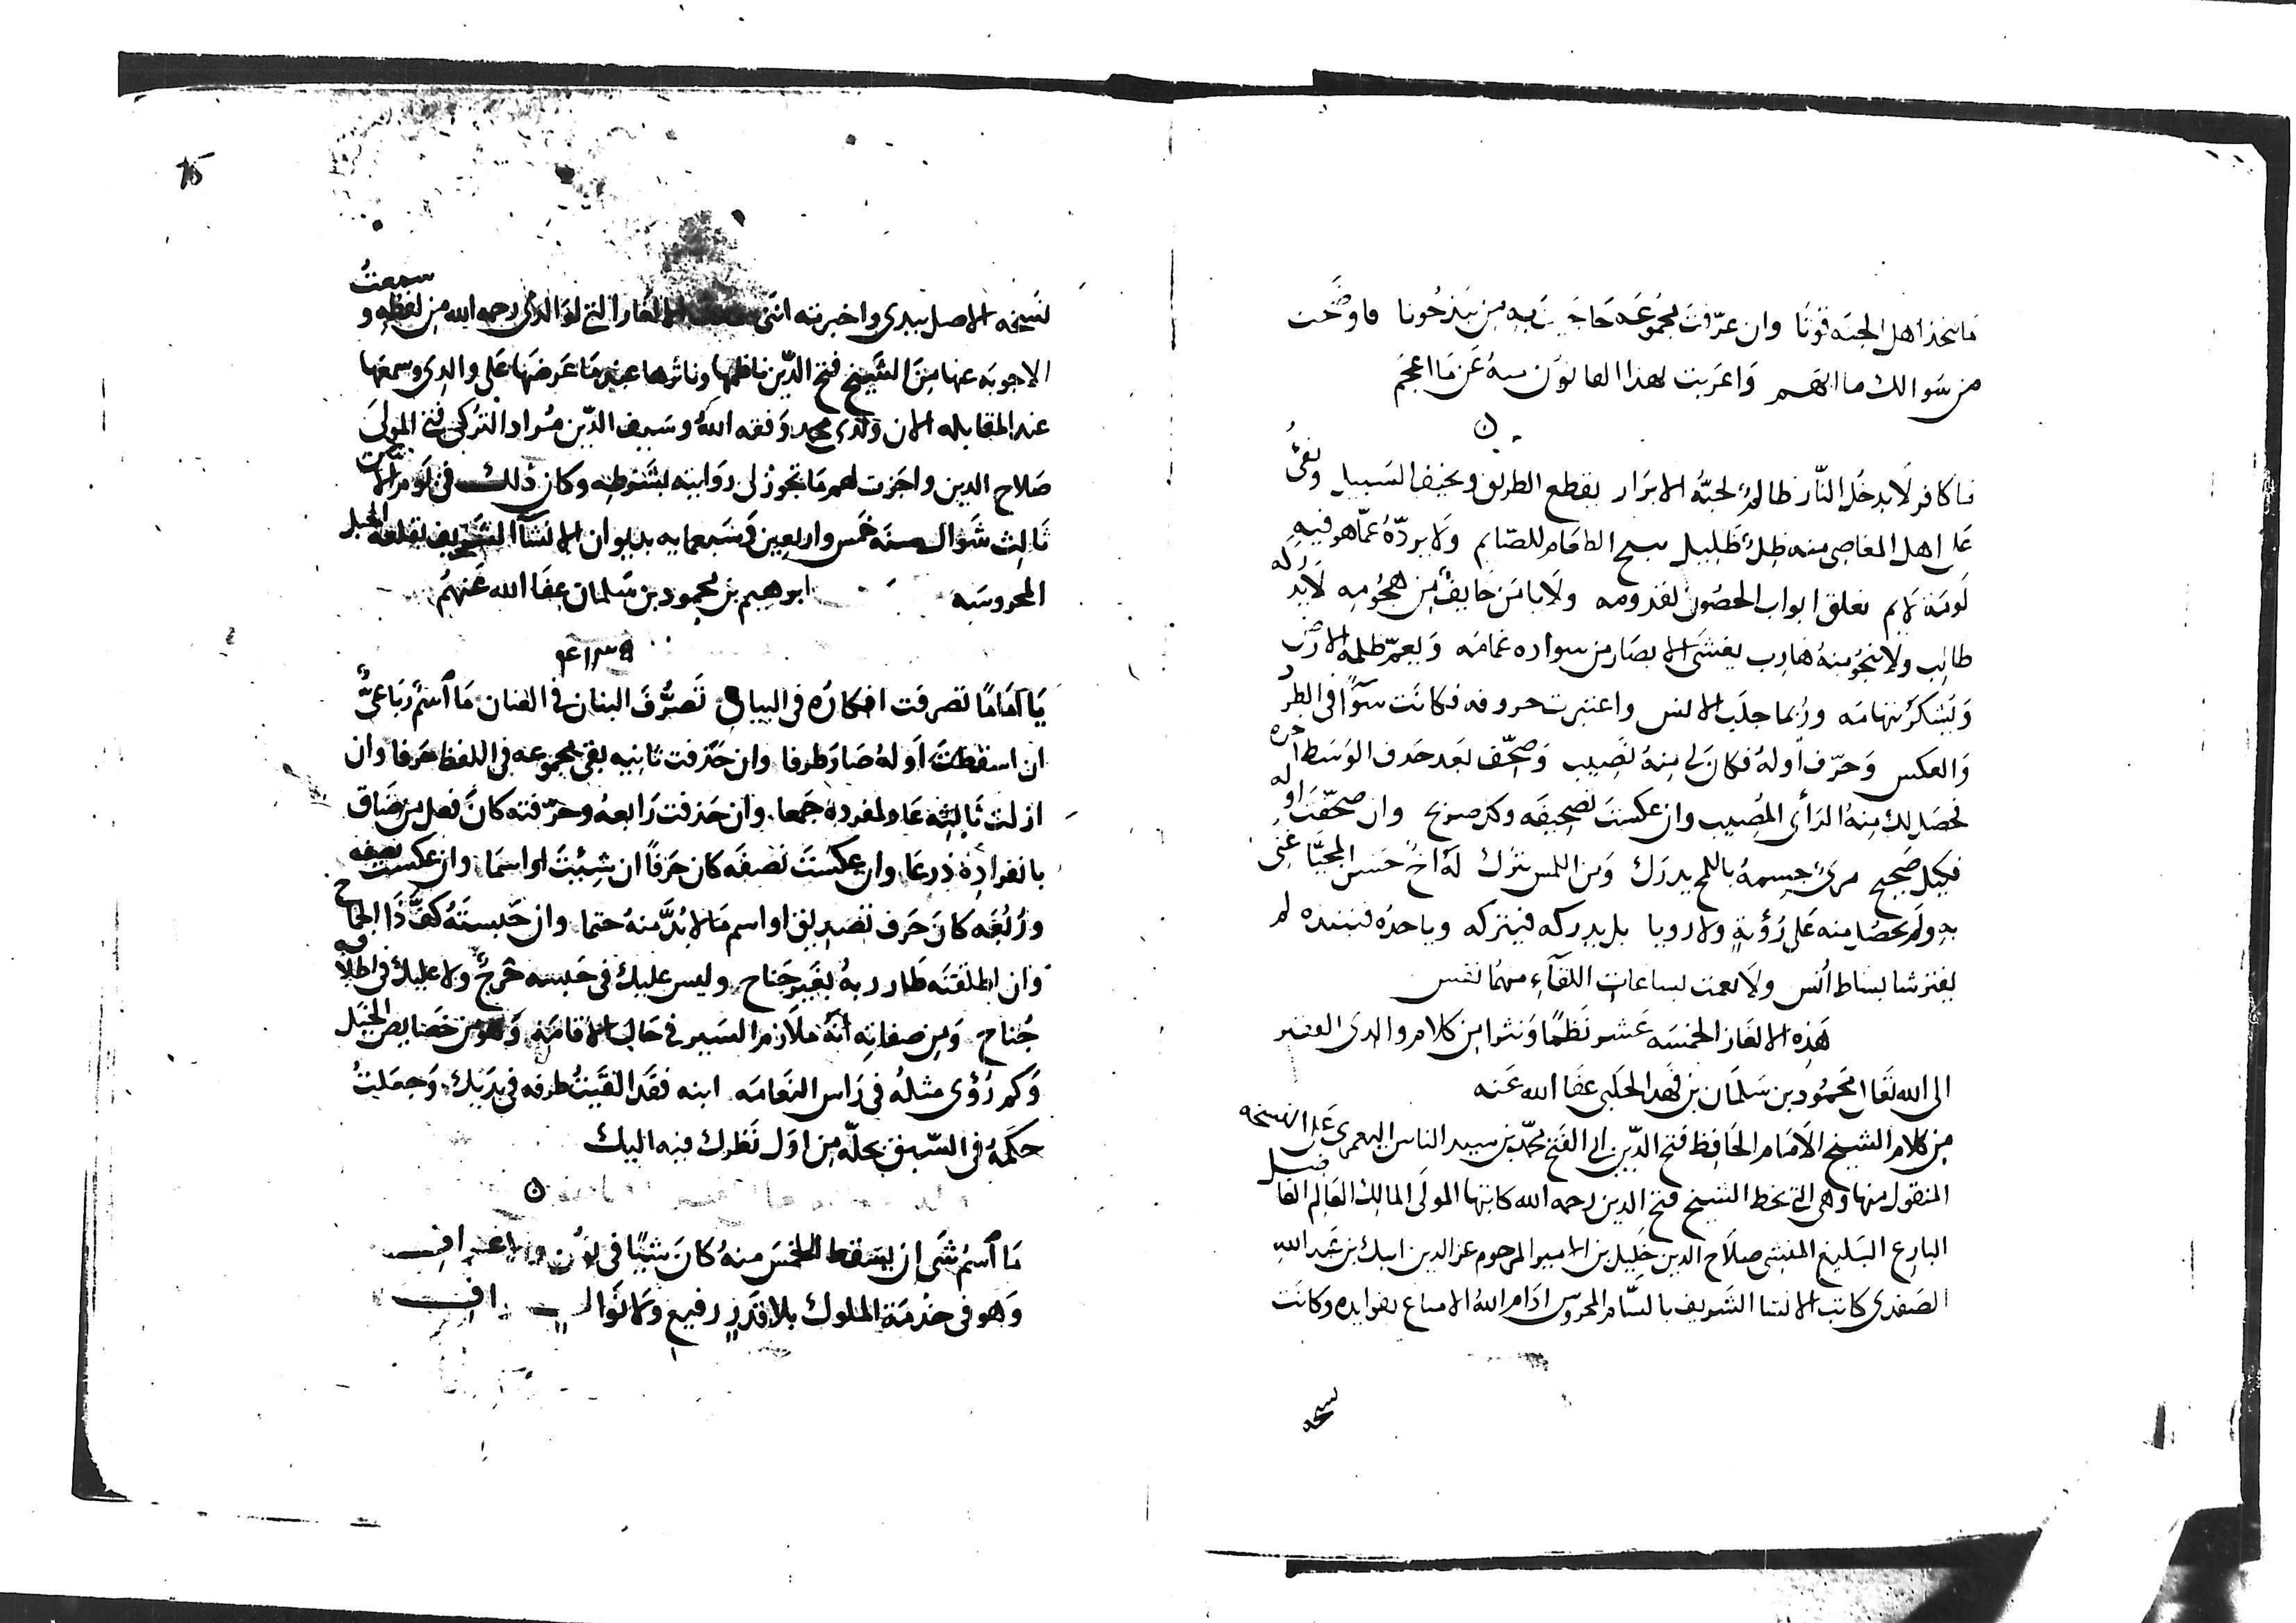 ما تتخذ اهل الجنه قوتا وان عرفت مجموعه به من بيذخونا فاوضحت
من سوالك ما ابهم واعربت لهذا القانون منه عن ما اعجم
ن
ما كافر لا يدخل النار ظالم لجنة الابرار يقطع الطريق ويخيف السبيل وتقى
على اهل المعاصى منه ظل ظليل يبيح الطعام للصايم ولا يرده عما هو فيه
لومة لايم يغلق ابواب الحصون لقدومه ولا يامن خايف من هجومه لا يدركه
طالب ولا ينجو منه هارب يغشى الابصار من سواده غمامه ويعم ظلمه الارض
ويشكر تهامه وربما جلب الانس واعتبرت حروفه فكانت سوا فى الطرد
والعكس وحرف اوله فكان لى منه نصيب وصحف بعد حذف الوسط اخره
فحصل لك منه الراى المصيب وان عكست تصحيفه وكر صريح وان صحفت اوله
فكيل صحيح مرى جسمه باللمح يدرك ومن اللمس يترك له اخ حسن المحيا غنى
به ولم يحصل منه على رؤية ولا رويا بل يدركه فيتركه وياخذه فينبذه لم
يفترشا بساط انس ولا نعمت بساعات اللقاء منهما نفس
هذه الالغاز الخمسه عشر نظما ونثرا من كلام والدى الفقير
الى الله تعالى محمود بن سلمان بن فهد الحلبى عفا الله عنه
من كلام الشيخ الامام الحافظ فتح الدين ابى الفتح محمد بن سيد الناس اليعمرى على النسخه
المنقول منها وهى التى بخط الشيخ فتح الدين رحمه الله كاتبها المولى المالك العالم الفاضل
البارع البليغ المنشى صلاح الدين خليل بن الامير المرحوم عز الدين ايبك بن عبد الله
الصفدى كاتب الانشا الشريف بالشام المحروس ادام الله الامتاع بفوايده وكانت
نسخه
75
نسخه الاصل بيدى واخبرته اننى الالغاز التى لوالدى رحمه الله من لفظه وسمعت
الاجوبه عنها من الشيخ فتح الدين ناظمها وناثرها عند ما عرضها على والدى وسمعها
عند المقابله الان ولدى محمد وفقه الله وسيف الدين مراد التركى فتى المولى
صلاح الدين واجزت لهم ما تجوز لى روايته بشرطه وكان ذلك فى يوم
ثالث شوال سنه خمس واربعين وسبعمايه بديوان الانشا الشريف بقلعه الجبل
المحروسه ابرهيم بن محمود بن سلمان عفا الله عنهم
يا اماما تصرفت افكاره فى البيان تصرف البنان فى العنان ما اسم رباعى
ان اسقطت اوله صار طرفا وان حذفت ثانيه بقى مجموعه فى اللفظ حرفا وان
ازلت ثالثه عاد لمفرده جمعا وان حذفت رابعه وحرفته كان فعل من ضاق
بانفراده ذرعا وان عكست نصفه كان حرفا ان شئت او اسما وان عكست نصفه
وربعه كان حرف تصديق او اسم ما لا بد منه حتما وان حبسته كف ذا الجماح
وان اطلقته طار ربه بغير جناح وليس عليك فى حبسه حرج ولا عليك فى اطلاقه
جناح ومن صفاته انه ملازم السير فى حال الاقامه وهو من خصايص الخيل
وكم رؤى مثله فى راس النعامه ابنه فقد القيت طرفه فى يديك وجعلت
حكمه فى السبق بحله من اول نظرك فيه اليك
ن
ما اسم شى ان يسقط الخمس منه كان شيئا فى لون
وهو فى خدمة الملوك بلا قدر رفيع ولا نوال